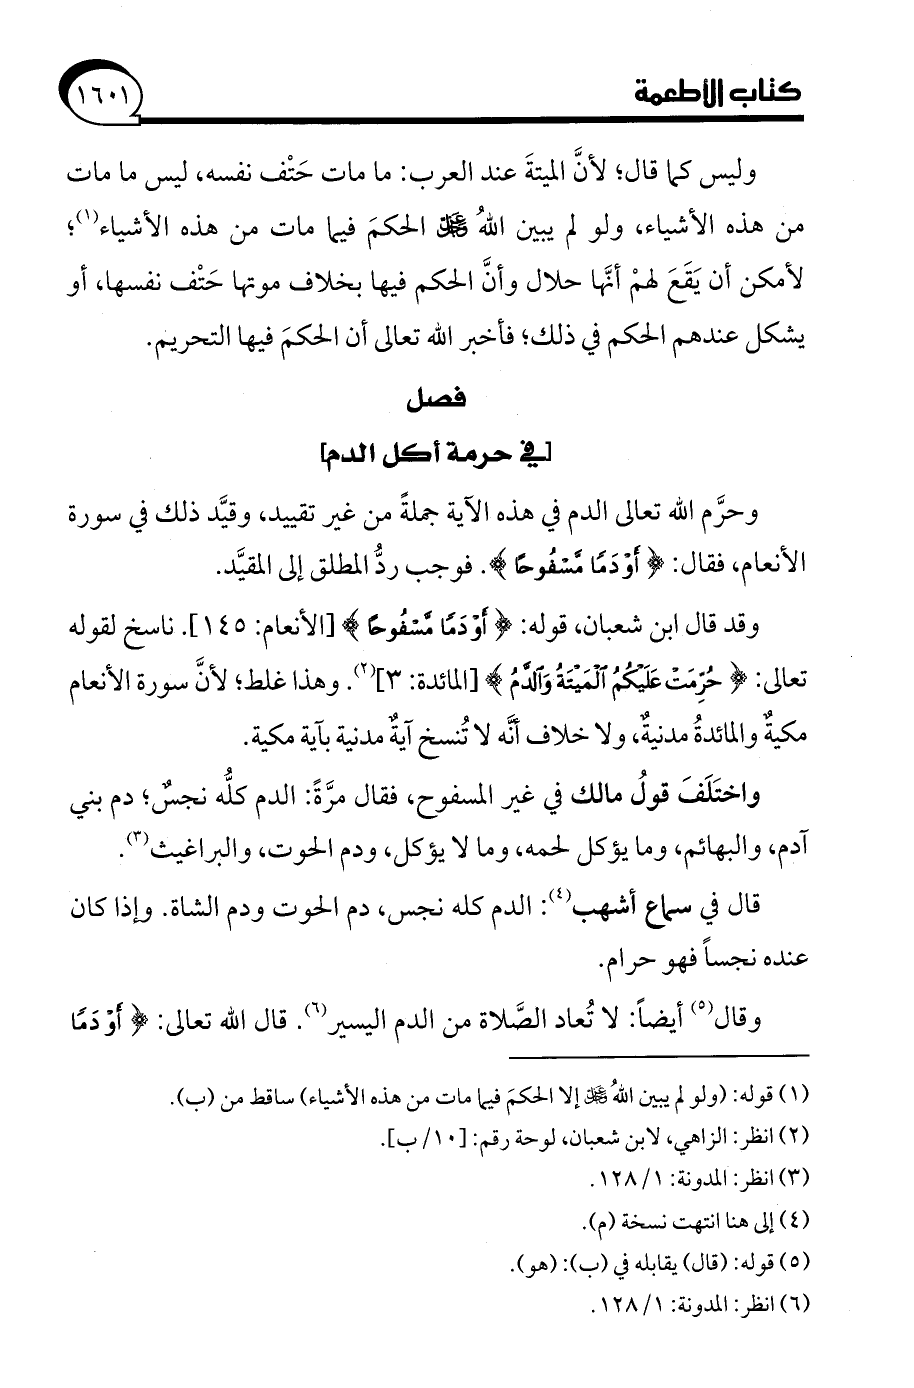 كتاب الأطعمة
١٦٠١
وليس كما قال؛ لأنَّ الميتةَ عند العرب: ما مات حَتْف نفسه، ليس ما مات
من هذه الأشياء، ولو لم يبين اللهُ ﷻ الحكمَ فيما مات من هذه الأشياء(١)؛
لأمكن أن يَقَعَ لهمْ أنَّها حلال وأنَّ الحكم فيها بخلاف موتها حَتْف نفسها، أو
يشكل عندهم الحكم في ذلك؛ فأخبر الله تعالى أن الحكمَ فيها التحريم.
فصل
[في حرمة أكل الدم]
وحرَّم الله تعالى الدم في هذه الآية جملةً من غير تقييد، وقيَّد ذلك في سورة
الأنعام، فقال: ﴿ أَوْ دَمًا مَّسْفُوحًا ﴾. فوجب ردُّ المطلق إلى المقيَّد.
وقد قال ابن شعبان، قوله: ﴿ أَوْ دَمًا مَّسْفُوحًا ﴾ [الأنعام: ١٤٥]. ناسخ لقوله
تعالى: ﴿ حُرِّمَتْ عَلَيْكُمُ ٱلْمَيْتَةُ وَٱلدَّمُ ﴾ [المائدة: ٣](٢). وهذا غلط؛ لأنَّ سورة الأنعام
مكيةٌ والمائدةُ مدنيةٌ، ولا خلاف أنَّه لا تُنسخ آيةٌ مدنية بآية مكية.
واختَلَفَ قولُ مالك في غير المسفوح، فقال مرَّةً: الدم كلُّه نجسٌ؛ دم بني
آدم، والبهائم، وما يؤكل لحمه، وما لا يؤكل، ودم الحوت، والبراغيث(٣).
قال في سماع أشهب(٤): الدم كله نجس، دم الحوت ودم الشاة. وإذا كان
عنده نجساً فهو حرام.
وقال(٥) أيضاً: لا تُعاد الصَّلاة من الدم اليسير(٦). قال الله تعالى: ﴿ أَوْ دَمًا
(١) قوله: (ولو لم يبين اللهُ ﷻ إلا الحكمَ فيما مات من هذه الأشياء) ساقط من (ب).
(٢) انظر: الزاهي، لابن شعبان، لوحة رقم: [١٠/ب].
(٣) انظر: المدونة: ١/ ١٢٨.
(٤) إلى هنا انتهت نسخة (م).
(٥) قوله: (قال) يقابله في (ب): (هو).
(٦) انظر: المدونة: ١/ ١٢٨.